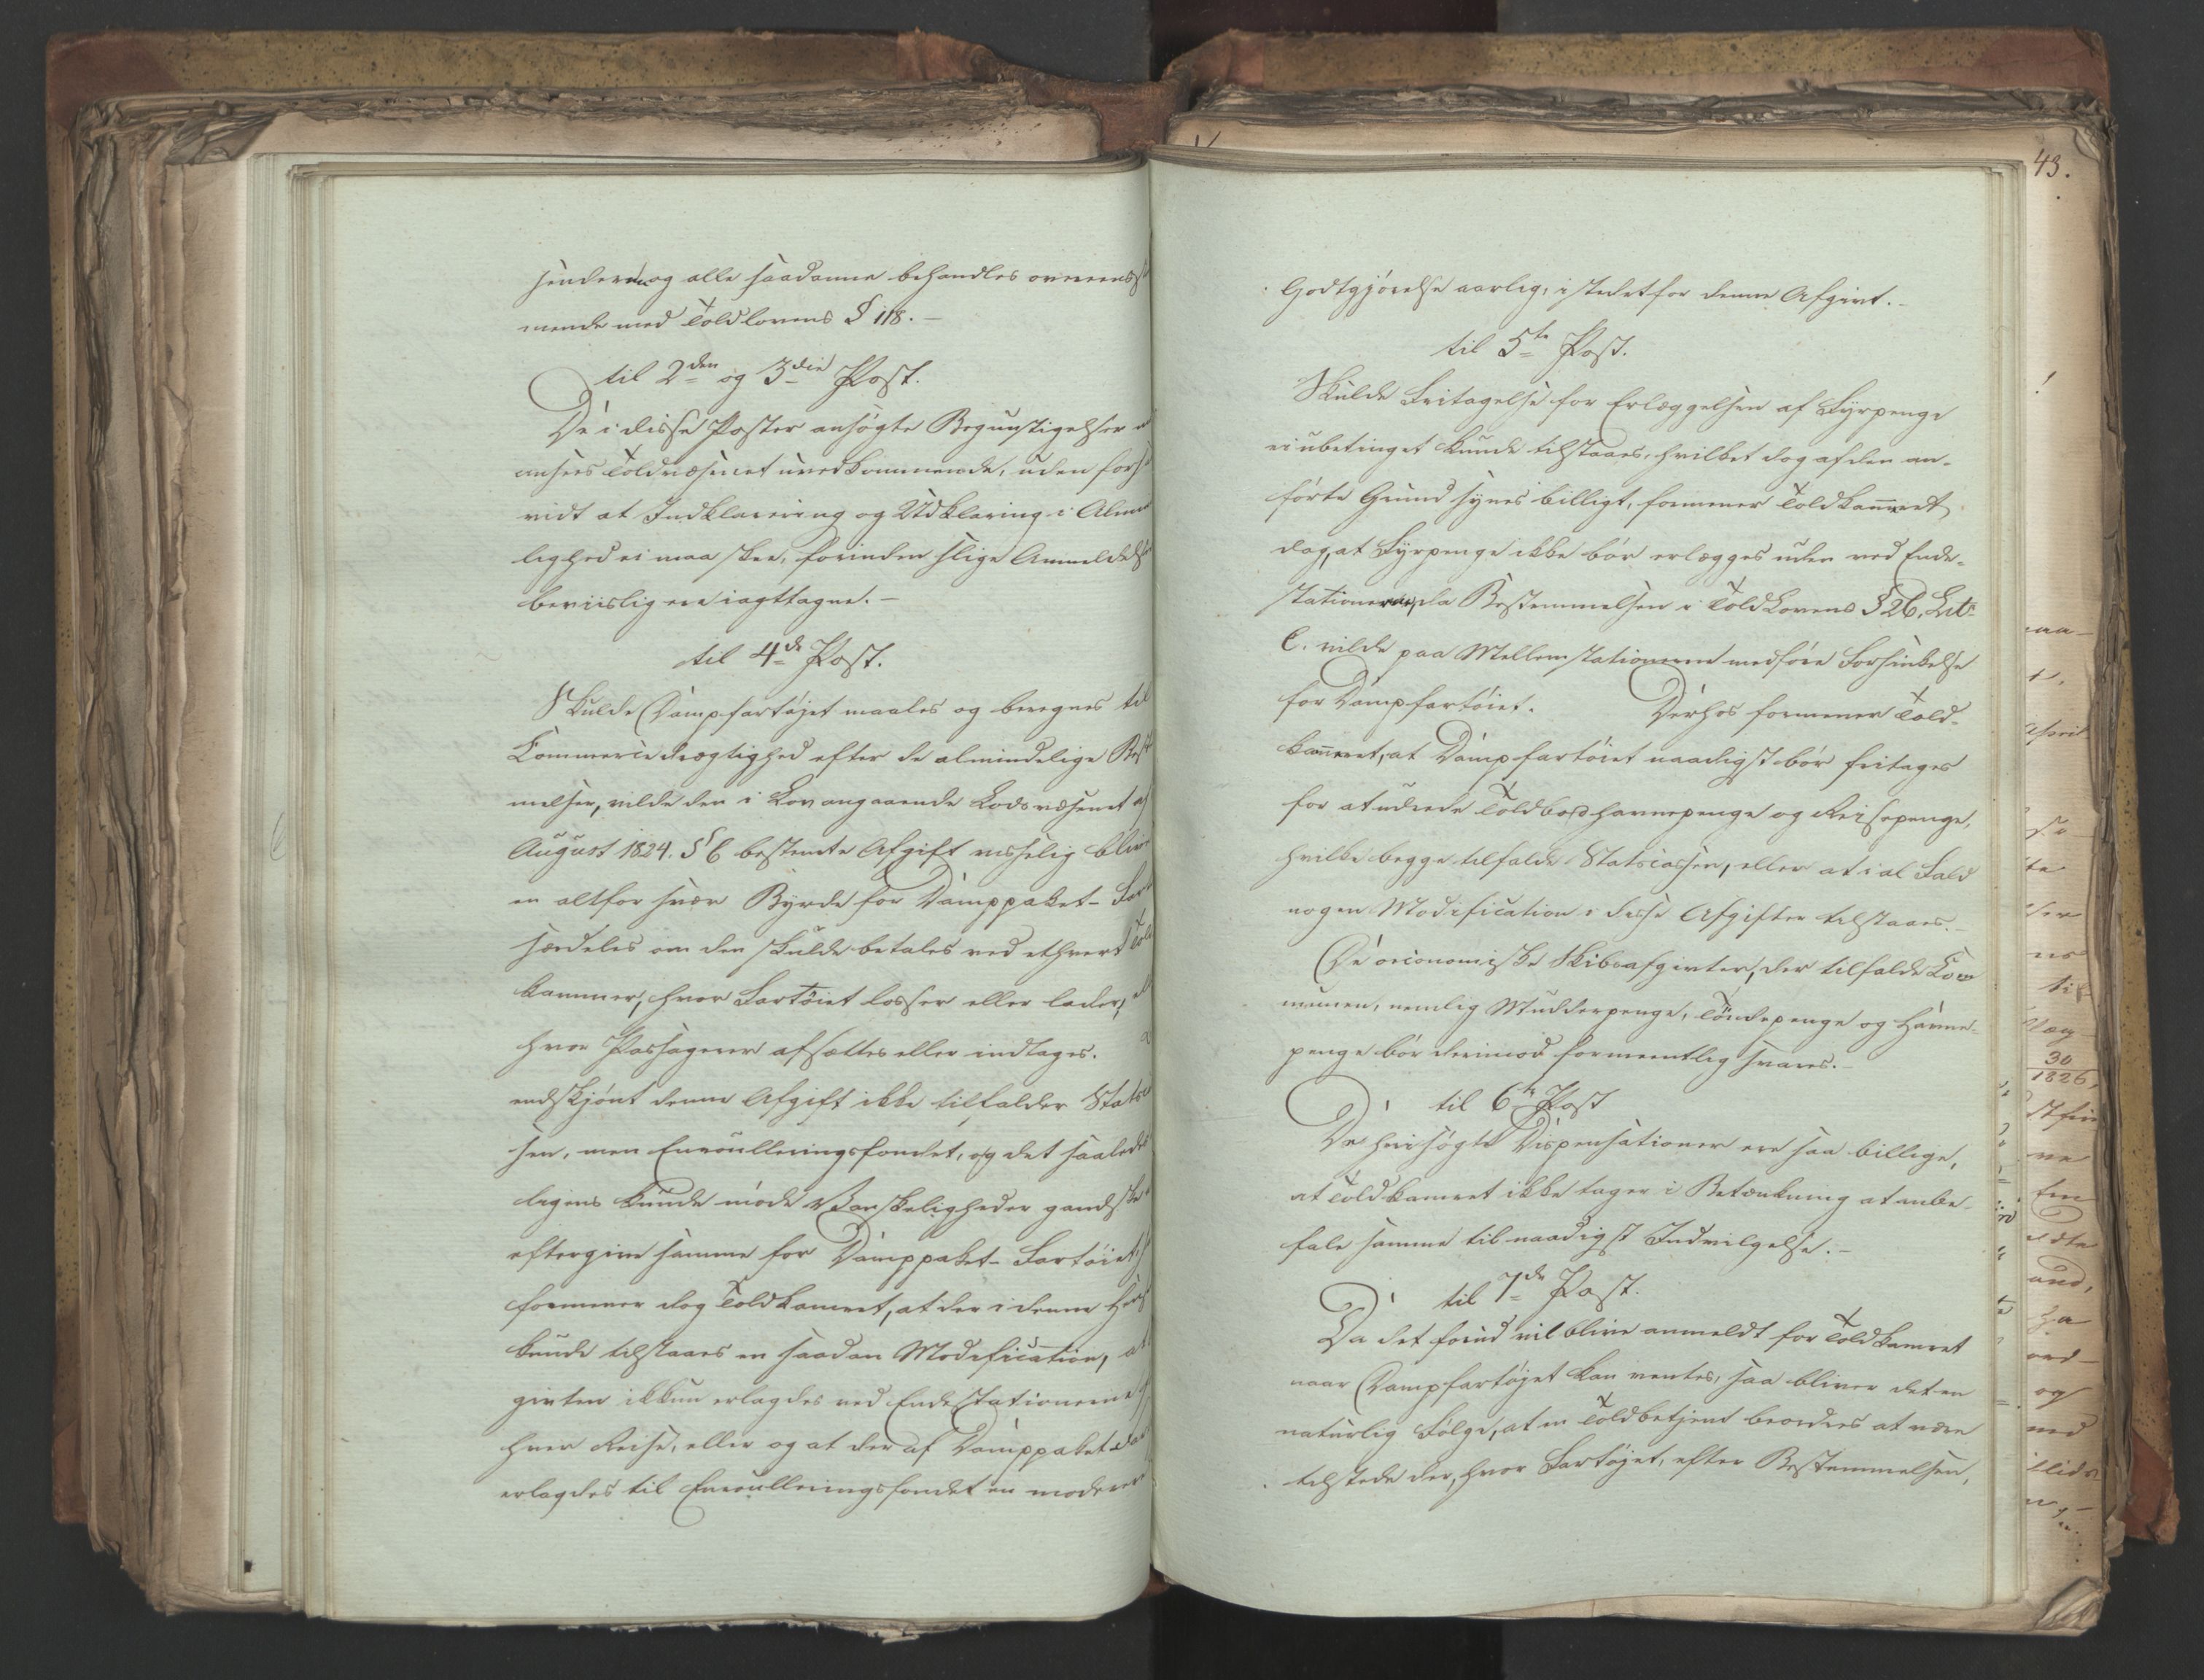 senderne og alle saadanne behandles overeens
mende med Toldlovens § 118. –
til 2den og 3die Post.
De i disse Poster ansøgte Begunstigelser
ansees Toldvæsenet uvedkommende, uden for
vidt at Indklarering og Udklaring i Almin
lighed ei maa skee, forinden slige Anmeldelser
beviislig ere iagttagne. –
til 4de Post.
Skulde Dampfartøjet maales og beregnes til
Commercedrægtighed efter de almindelige Best
melser, vilde den i Lov angaaende Lodsvæsenet af
August 1824. § 6 bestemte Afgift visselig blive
en altfor svær Byrde for Damppaket-Far
særdeles om den skulde betales ved ethvert Told
kammer, hvor Fartøiet losser eller lader,
hvor Passagerer afsættes eller indtages.
endskjønt denne Afgift ikke tilfalder Stats
sen, men Enroulleringsfondet, og det saaledes
ligens kunde møde Vanskeligheder gandske
eftergive samme for Damppaket-Fartøiet,
formener dog Toldkameret, at der i denne Hens
kunde tilstaaes en saadan Modification,
giften ikkun erlagdes ved Endestationerne
hver Reise, eller og at der af Damppaket
erlagdes til Enroulleringsfondet en moderer
43.
Godtgjørelse aarlig, istedetfor denne Afgivt. –
til 5te Post.
Skulde Fritagelse for Erlæggelsen af Fyrpenge
ei ubetinget kunde tilstaaes, hvilket dog af den an-
førte Grund synes billigt, formener Toldkammeret
dog, at Fyrpenge ikke bør erlægges uden ved Ende-
stationerne, da Bestemmelsen i Toldlovens § 26, Litr
C. vilde paa Mellemstationerne medføre Forsinkelse
for Dampfartøiet. Derhos formener Told-
kammeret, at Dampfartøiet naadigst bør fritages
for at udrede Toldbodhavnepenge og Reisepenge,
hvilke begge tilfalde Statscassen, eller at i al Fald
nogen Modification i disse Afgifter tilstaaes. –
De oeconomiske Skibsafgivter, der tilfalde Com
munen, nemlig Mudderpenge, Tøndepenge og Havne-
penge bør derimod formeentlig svares. –
til 6te Post
De her søgte Dispensationer ere saa billige,
at Toldkameret ikke tager i Betænkning at anbe-
fale samme til naadigst Indvilgelse. –
til 7de Post.
Da det forud vil blive anmeldt for Toldkameret
naar Dampfartøjet kan ventes, saa bliver det en
naturlig Følge, at en Toldbetjent beordres at være
tilstede der, hvor Fartøjet, efter Bestemmelsen,